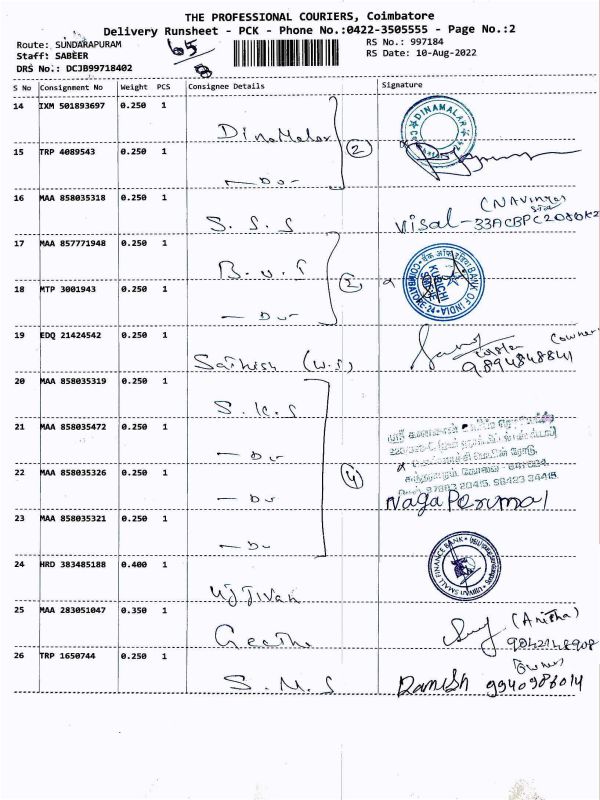 THE PROFESSIONAL COURIERS, Coimbatore
Delivery Runsheet - PCK - Phone No.:0422-3505555 - Page No.:2
Route: SUNDARAPURAM
RS No.: 997184
Staff: SABEER
RS Date: 10-Aug-2022
DRS No.: DCJB99718402
65
8
S No Consignment No Weight PCS Consignee Details Signature
14 IXM 501893697 0.250 1 DinaMalar
DINAMALAR
15 TRP 4089543 0.250 1 - Do -
2
16 MAA 858035318 0.250 1 S. S. S
Visal - 33ACBPC2080K2
17 MAA 857771948 0.250 1 B.
18 MTP 3001943 0.250 1 - Do -
2
बैंक ऑफ इंडिया BANK OF INDIA
KURICHI
COIMBATORE-24
19 EDQ 21424542 0.250 1 Sathish (W.S)
(owner)
9894848841
20 MAA 858035319 0.250 1 S. K. S
21 MAA 858035472 0.250 1 - Do -
22 MAA 858035326 0.250 1 - Do -
4
Naga Perumal
23 MAA 858035321 0.250 1 - Do -
24 HRD 383485188 0.400 1 Ujjivan
UJJIVAN SMALL FINANCE BANK
25 MAA 283051047 0.350 1 Geetha
(Anitha)
9042148908
26 TRP 1650744 0.250 1 S. M. S
(owner)
Ramesh 9940986014